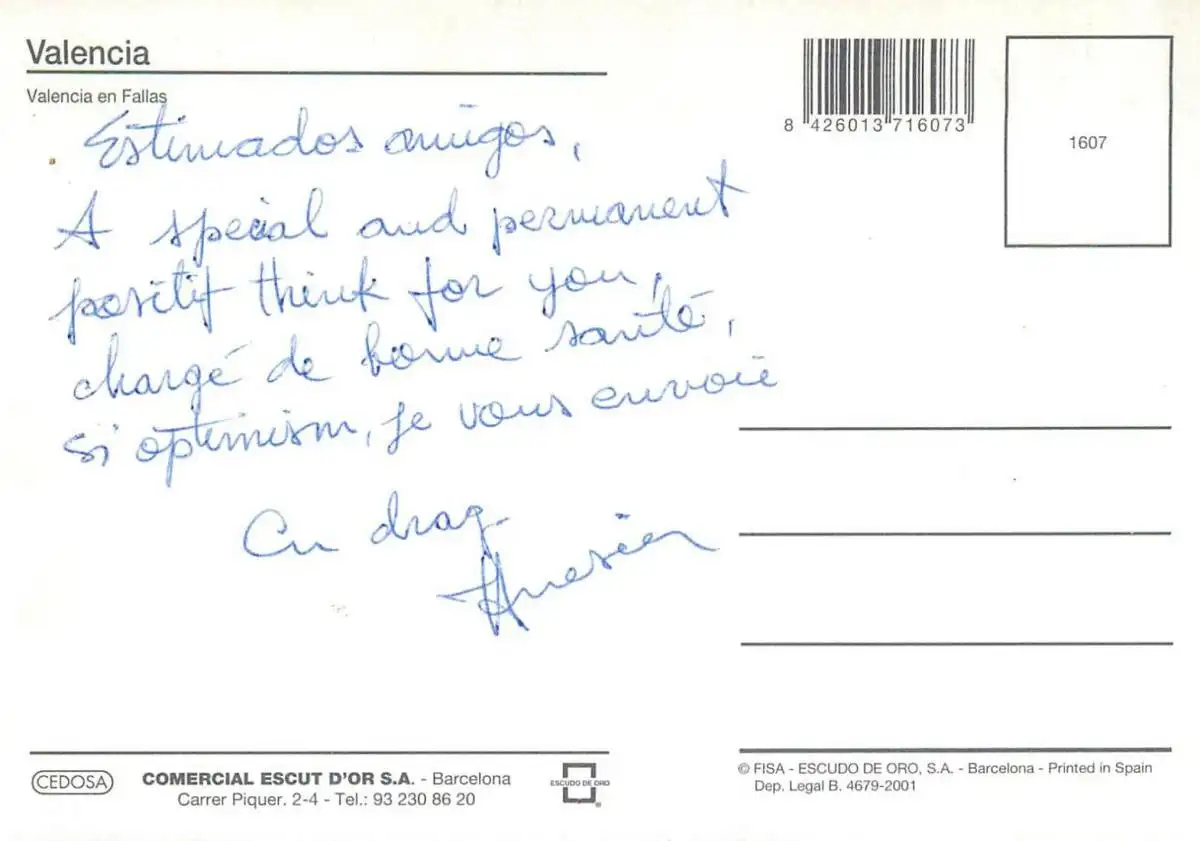 Valencia
Valencia en Fallas
8 426013 716073
1607
Estimados amigos,
A special and permanent
positif think for you,
chargé de bonne santé,
si optimism, je vous envoie
Cu drag
CEDOSA
COMERCIAL ESCUT D'OR S.A. - Barcelona
Carrer Piquer. 2-4 - Tel.: 93 230 86 20
ESCUDO DE ORO
© FISA - ESCUDO DE ORO, S.A. - Barcelona - Printed in Spain
Dep. Legal B. 4679-2001